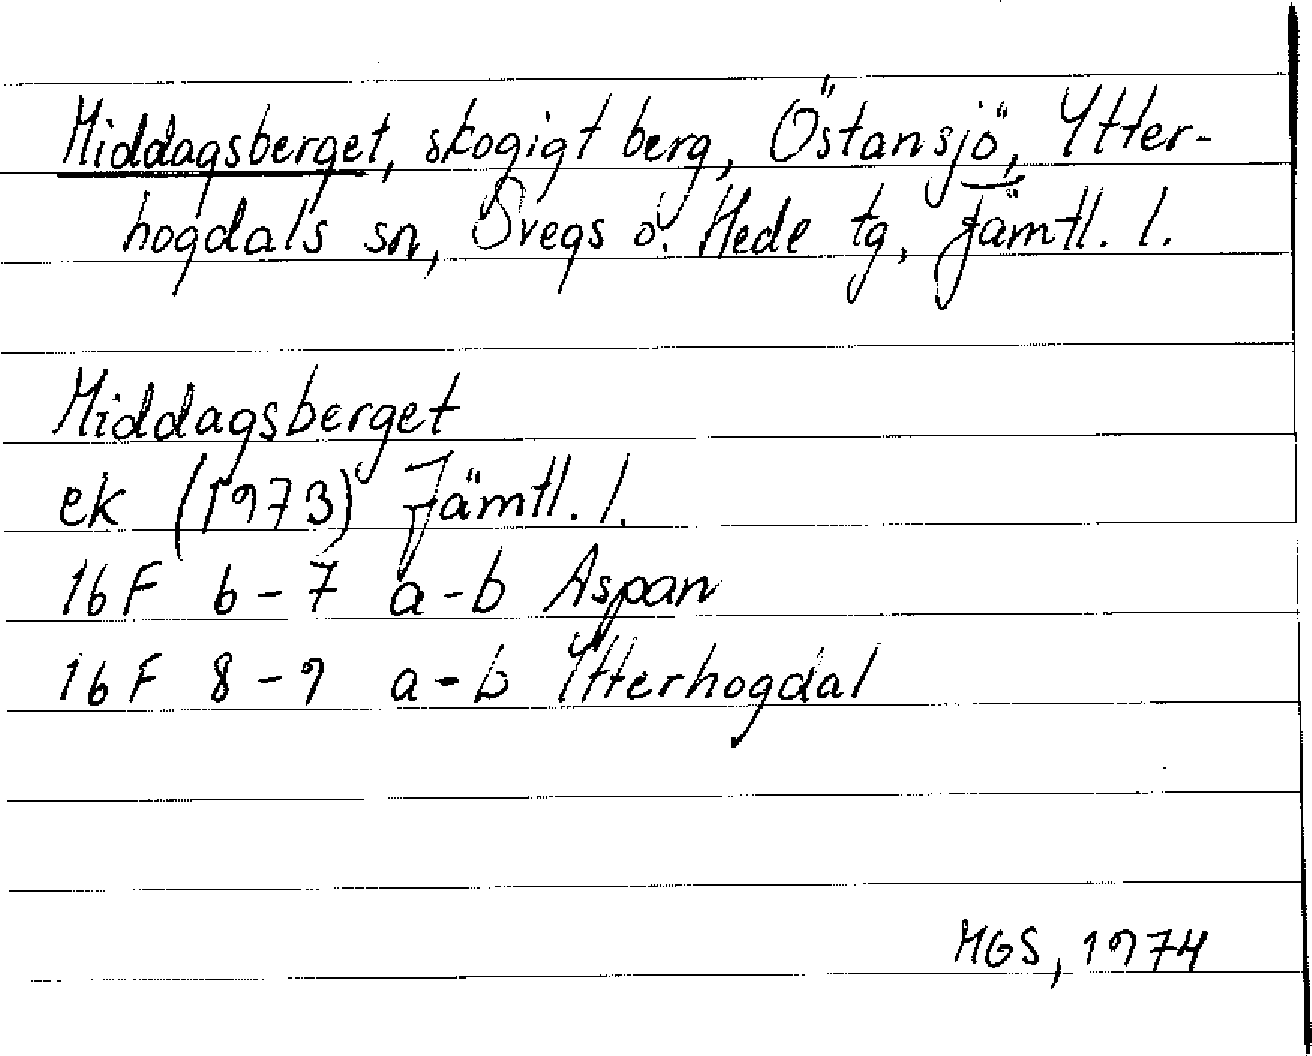 Middagsberget, skogigt berg, Östansjö, Ytter-
hogdals sn, Svegs o. Hede tg, Jämtl. l.
Middagsberget
ek (1973) Jämtl. l.
16 F 6-7 a-b Aspan
16 F 8-9 a-b Ytterhogdal
MGS, 1974